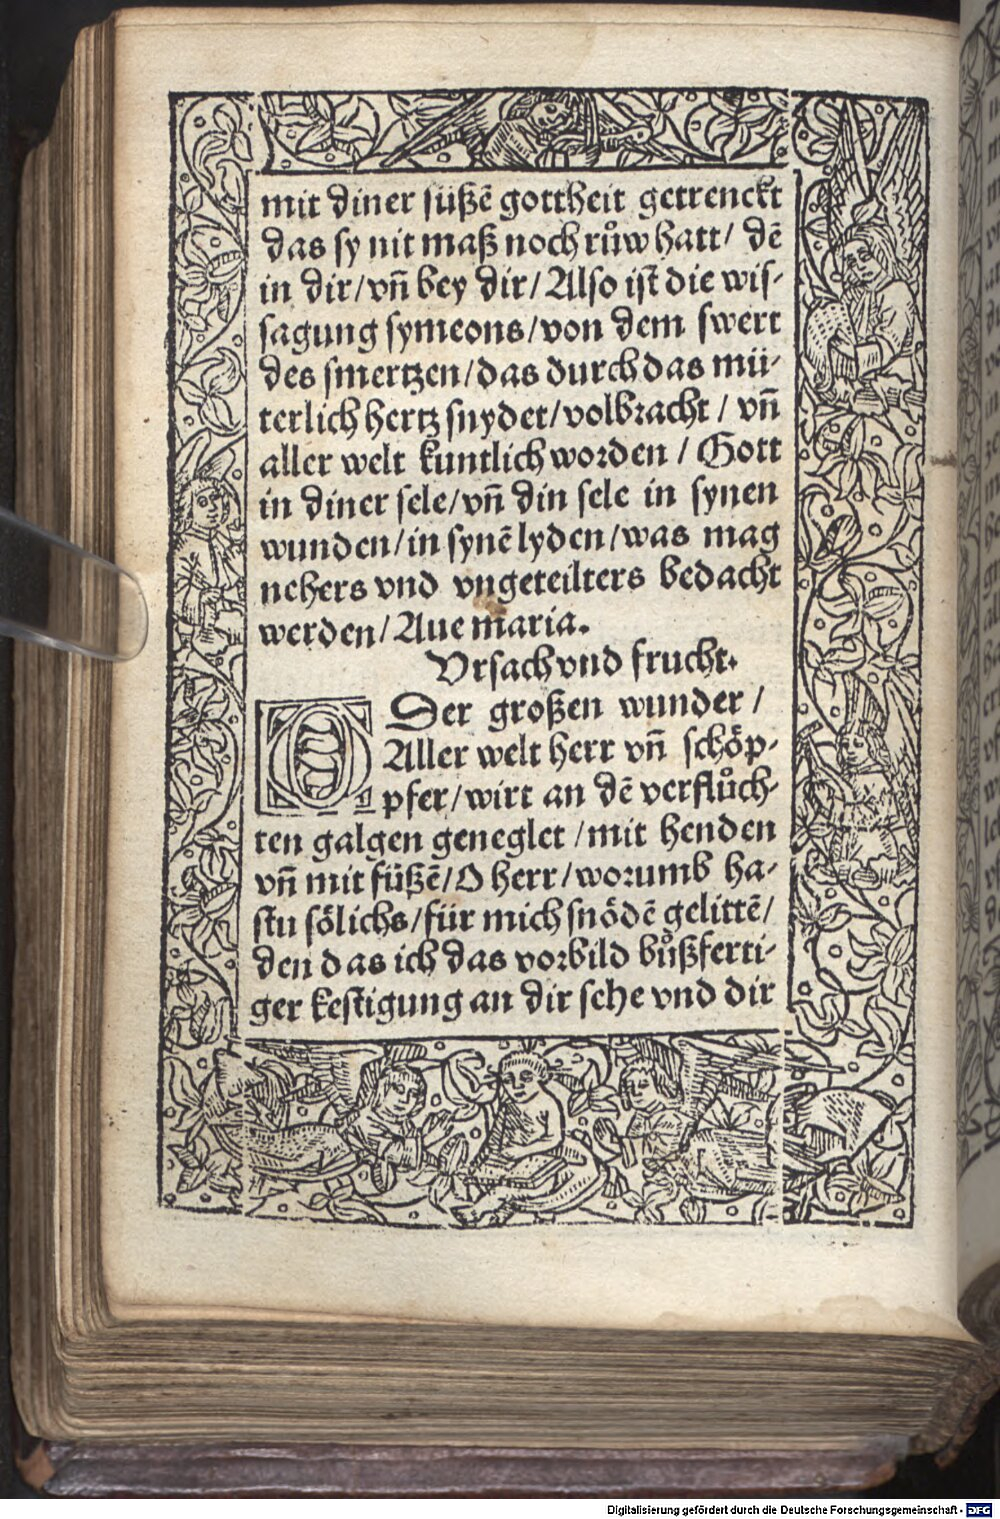 mit diner süßē gottheit getrenckt
das sy nit maß noch růw hatt/ dē
in dir/vn̄ bey dir/Also ist die wis-
sagung symeons/von dem swert
des smertzen/das durch das mü-
terlich hertz snydet/volbracht/ vn̄
aller welt kuntlich worden/ Gott
in diner sele/vn̄ din sele in synen
wunden/in synē lyden/was mag
nehers vnd vngeteilters bedacht
werden/Aue maria.
Vrsach vnd frucht.
O Der großen wunder/
Aller welt herr vn̄ schöp-
pfer/wirt an dē verflůch-
ten galgen geneglet/mit henden
vn̄ mit füßē/O herr/worumb ha-
stu sölichs/für mich snödē gelittē/
den das ich das vorbild bůßferti-
ger kestigung an dir sehe vnd dir
Digitalisierung gefördert durch die Deutsche Forschungsgemeinschaft - DFG